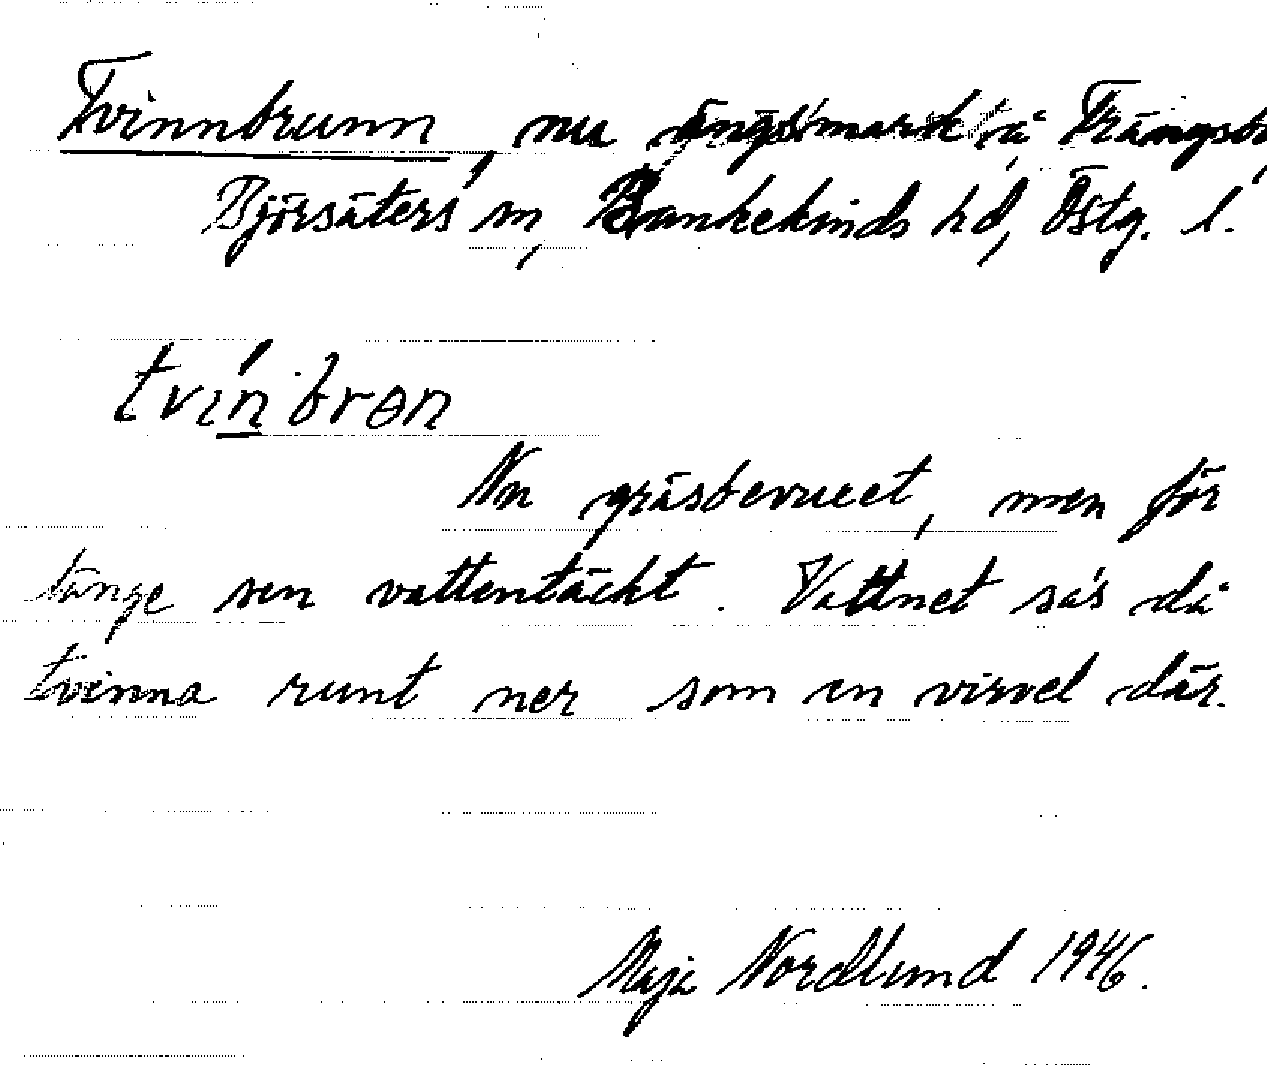 Tvinnbrunn, nu ängsmark å Trängsbo,
Björsäters sn, Bankekinds hd, Östg. l.
tvinbrøn
Nu gräsbevuxet, men för
länge sen vattentäckt. Vattnet sa's då
tvinna runt ner som en virvel där.
Maja Nordlund 1946.